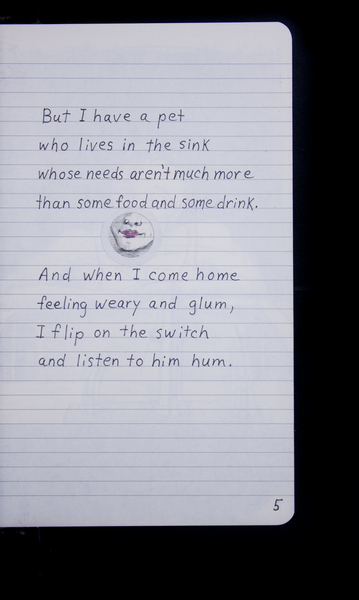 But I have a pet
who lives in the sink
whose needs aren't much more
than some food and some drink.
And when I come home
feeling weary and glum,
I flip on the switch
and listen to him hum.
5